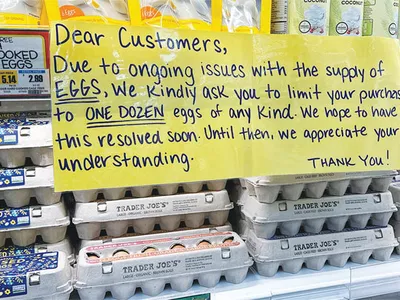 COCONUT
REE
OOKED
EGGS
5.14
2.99
Dear Customers,
Due to ongoing issues with the supply of
EGGS, we kindly ask you to limit your purchase
to ONE DOZEN eggs of any kind. We hope to have
this resolved soon. Until then, we appreciate your
understanding. THANK YOU!
TRADER JOE'S
TRADER JOE'S
TRADER JOE'S
TRADER JOE'S
TRADER JOE'S
TRADER JOE'S